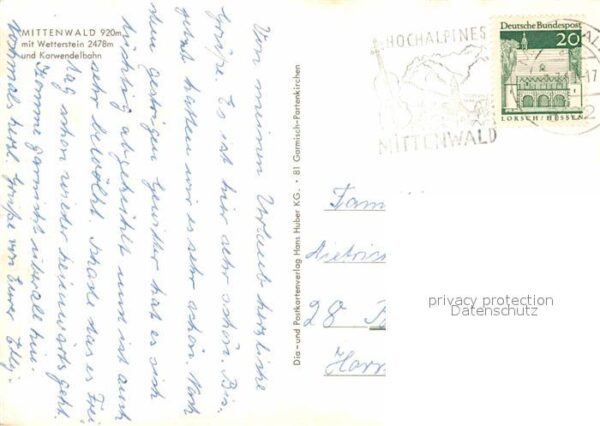 MITTENWALD 920m
mit Wetterstein 2478m
und Karwendelbahn
Von meinem Urlaub herzliche
Grüße. Es ist hier sehr schön. Bis
jetzt hatten wir es sehr schön. Nach
dem gestrigen Gewitter hat es sich
tüchtig abgekühlt und ist auch
sehr bewölkt. Schade das es Frei
tag schon wieder heimwärts geht.
Komme garnicht überall hin.
Nochmal herzl. Grüße von Eurer Elly.
Dia- und Postkartenverlag Hans Huber KG. · 81 Garmisch-Partenkirchen
HOCHALPINES
MITTENWALD
Deutsche Bundespost
20
LORSCH/HESSEN
-17
2
Fam
28 B
privacy protection
Datenschutz